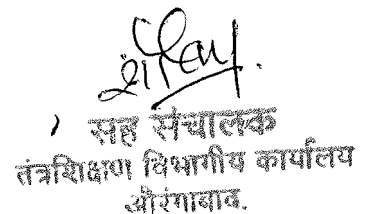 सह संचालक
तंत्रशिक्षण विभागीय कार्यालय
औरंगाबाद.